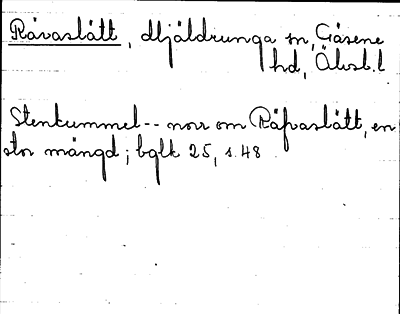 Rävaslätt, Mjäldrunga sn, Gäsene
hd, Älvsb.l
Stenkummel -- norr om Räfvaslätt, en
stor mängd; bglk 25, s. 48